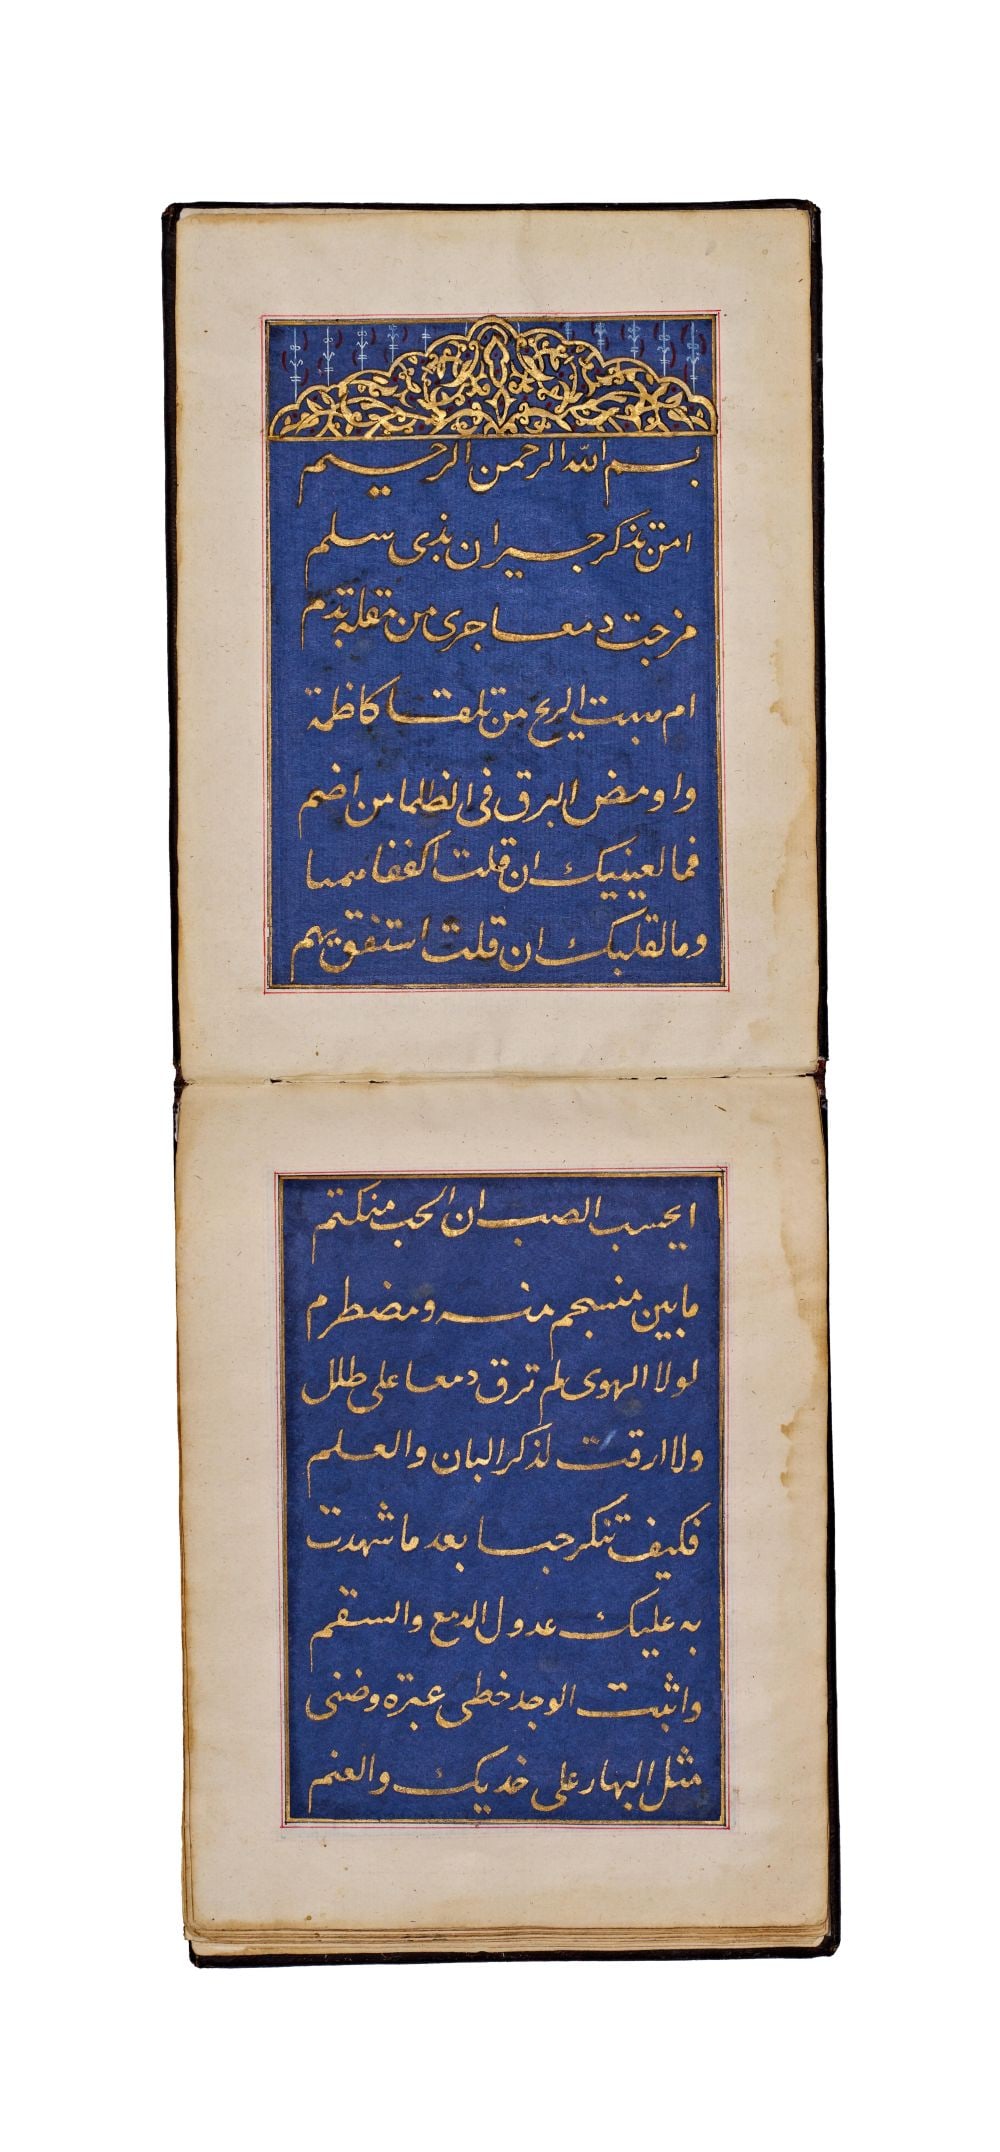 بسم الله الرحمن الرحيم
امن تذكر جيران بذى سلم
مزجت دمعا جرى من مقلة بدم
ام هبت الريح من تلقا كاظمة
واومض البرق فى الظلما من اضم
فما لعينيك ان قلت اكففا همتا
وما لقلبك ان قلت استفق يهم
ايحسب الصب ان الحب منكتم
ما بين منسجم منه ومضطرم
لولا الهوى لم ترق دمعا على طلل
ولا ارقت لذكر البان والعلم
فكيف تنكر حبا بعد ما شهدت
به عليك عدول الدمع والسقم
واثبت الوجد خطى عبرة وضنى
مثل البهار على خديك والعنم